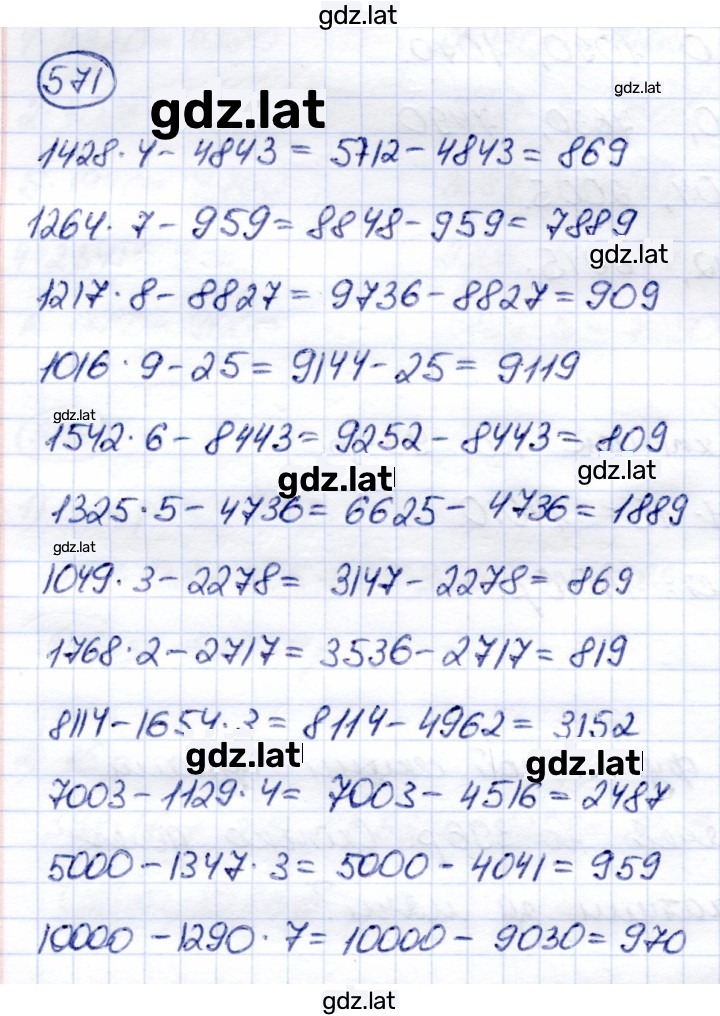 gdz.lat
571
gdz.lat
gdz.lat
1428·4-4843=5712-4843=869
1264·7-959=8848-959=7889
gdz.lat
1217·8-8827=9736-8827=909
1016·9-25=9144-25=9119
gdz.lat
1542·6-8443=9252-8443=809
gdz.lat
gdz.lat
1325·5-4736=6625-4736=1889
gdz.lat
1049·3-2278=3147-2278=869
1768·2-2717=3536-2717=819
8114-1654·3=8114-4962=3152
gdz.lat
gdz.lat
7003-1129·4=7003-4516=2487
5000-1347·3=5000-4041=959
10000-1290·7=10000-9030=970
gdz.lat